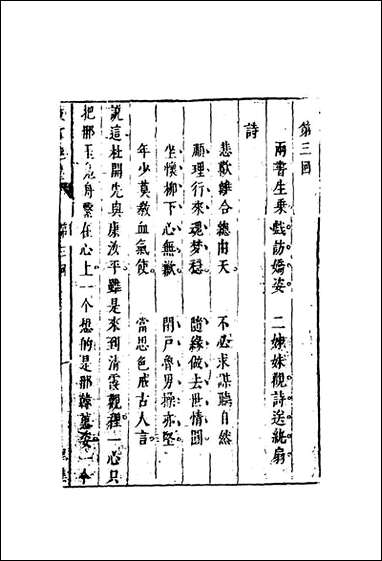 第三回
兩書生乘戲訪嬌姿　二姊妹觀詩送紈扇
詩
悲歡離合總由天　不必求謀聽自然
順理行來魂夢穩　隨緣做去世情閒
坐懷柳下心無歉　閉戶魯男操亦堅
年少莫教血氣使　當思色戒古人言
說這杜開先與康汝平雖是來到清霞觀裡一心只
把那玉鳧舟繫在心上一个想的是那韓蕙姿一个
第三回